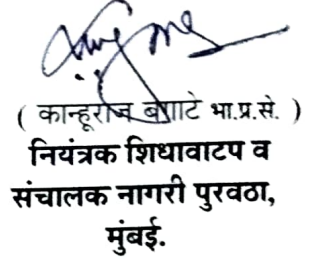 ( कान्हूराज बगाटे भा.प्र.से. )
नियंत्रक शिधावाटप व
संचालक नागरी पुरवठा,
मुंबई.